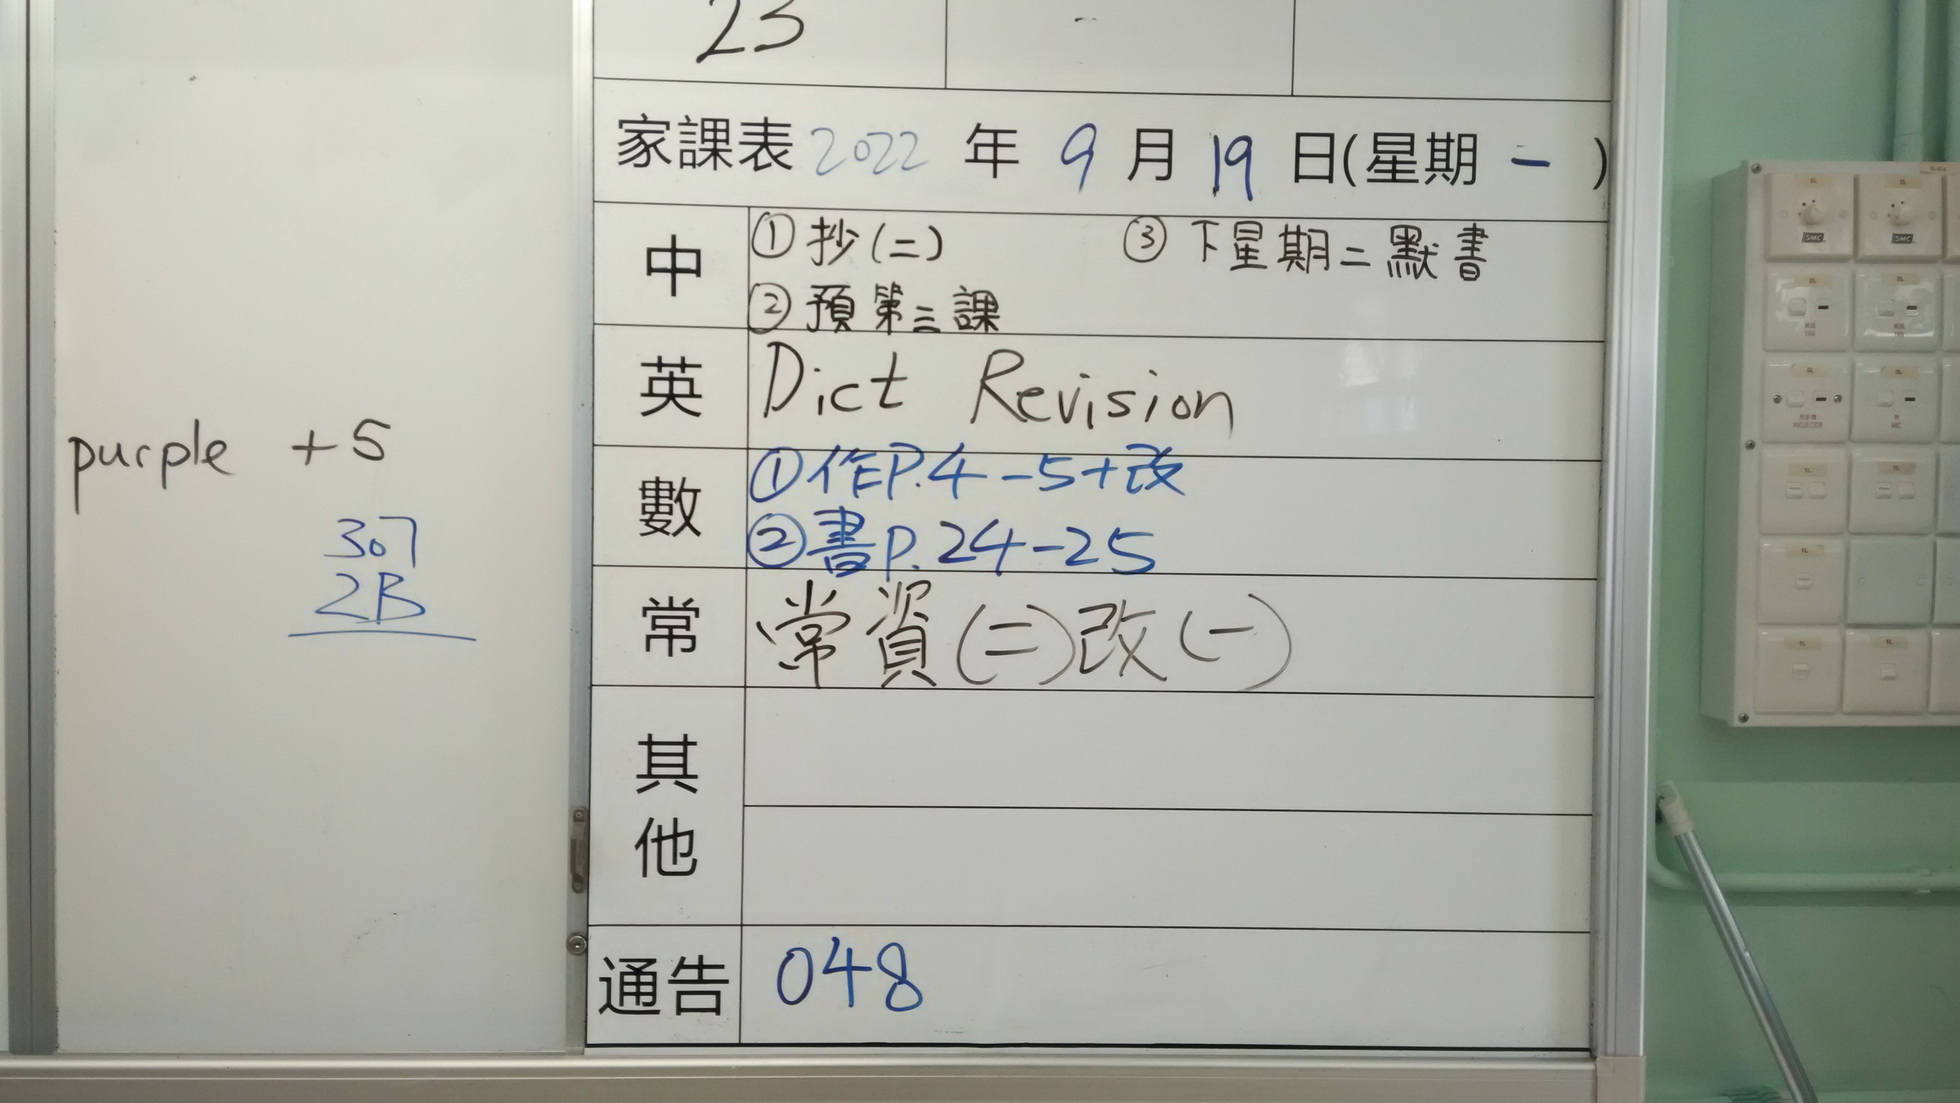 23
家課表 2022 年 9 月 19 日(星期 一 )
中 ① 抄(二) ③ 下星期二默書
② 預第三課
英 Dict Revision
數 ①作P.4-5+改
②書P.24-25
常 常資(二)改(一)
其他
通告 048
purple +5
307
2B
SMC SMC